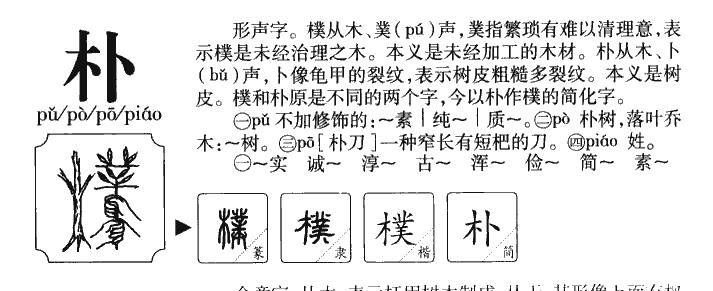 朴
pǔ/pò/pō/piáo
形声字。樸从木、菐(pú)声,菐指繁琐有难以清理意,表
示樸是未经治理之木。本义是未经加工的木材。朴从木、卜
(bǔ)声,卜像龟甲的裂纹,表示树皮粗糙多裂纹。本义是树
皮。樸和朴原是不同的两个字,今以朴作樸的简化字。
㊀pǔ 不加修饰的:～素｜纯～｜质～。㊁pò 朴树,落叶乔
木:～树。㊂pō[朴刀]一种窄长有短把的刀。㊃piáo 姓。
㊀～实 诚～ 淳～ 古～ 浑～ 俭～ 简～ 素～
樸 篆
樸 隶
樸 楷
朴 简